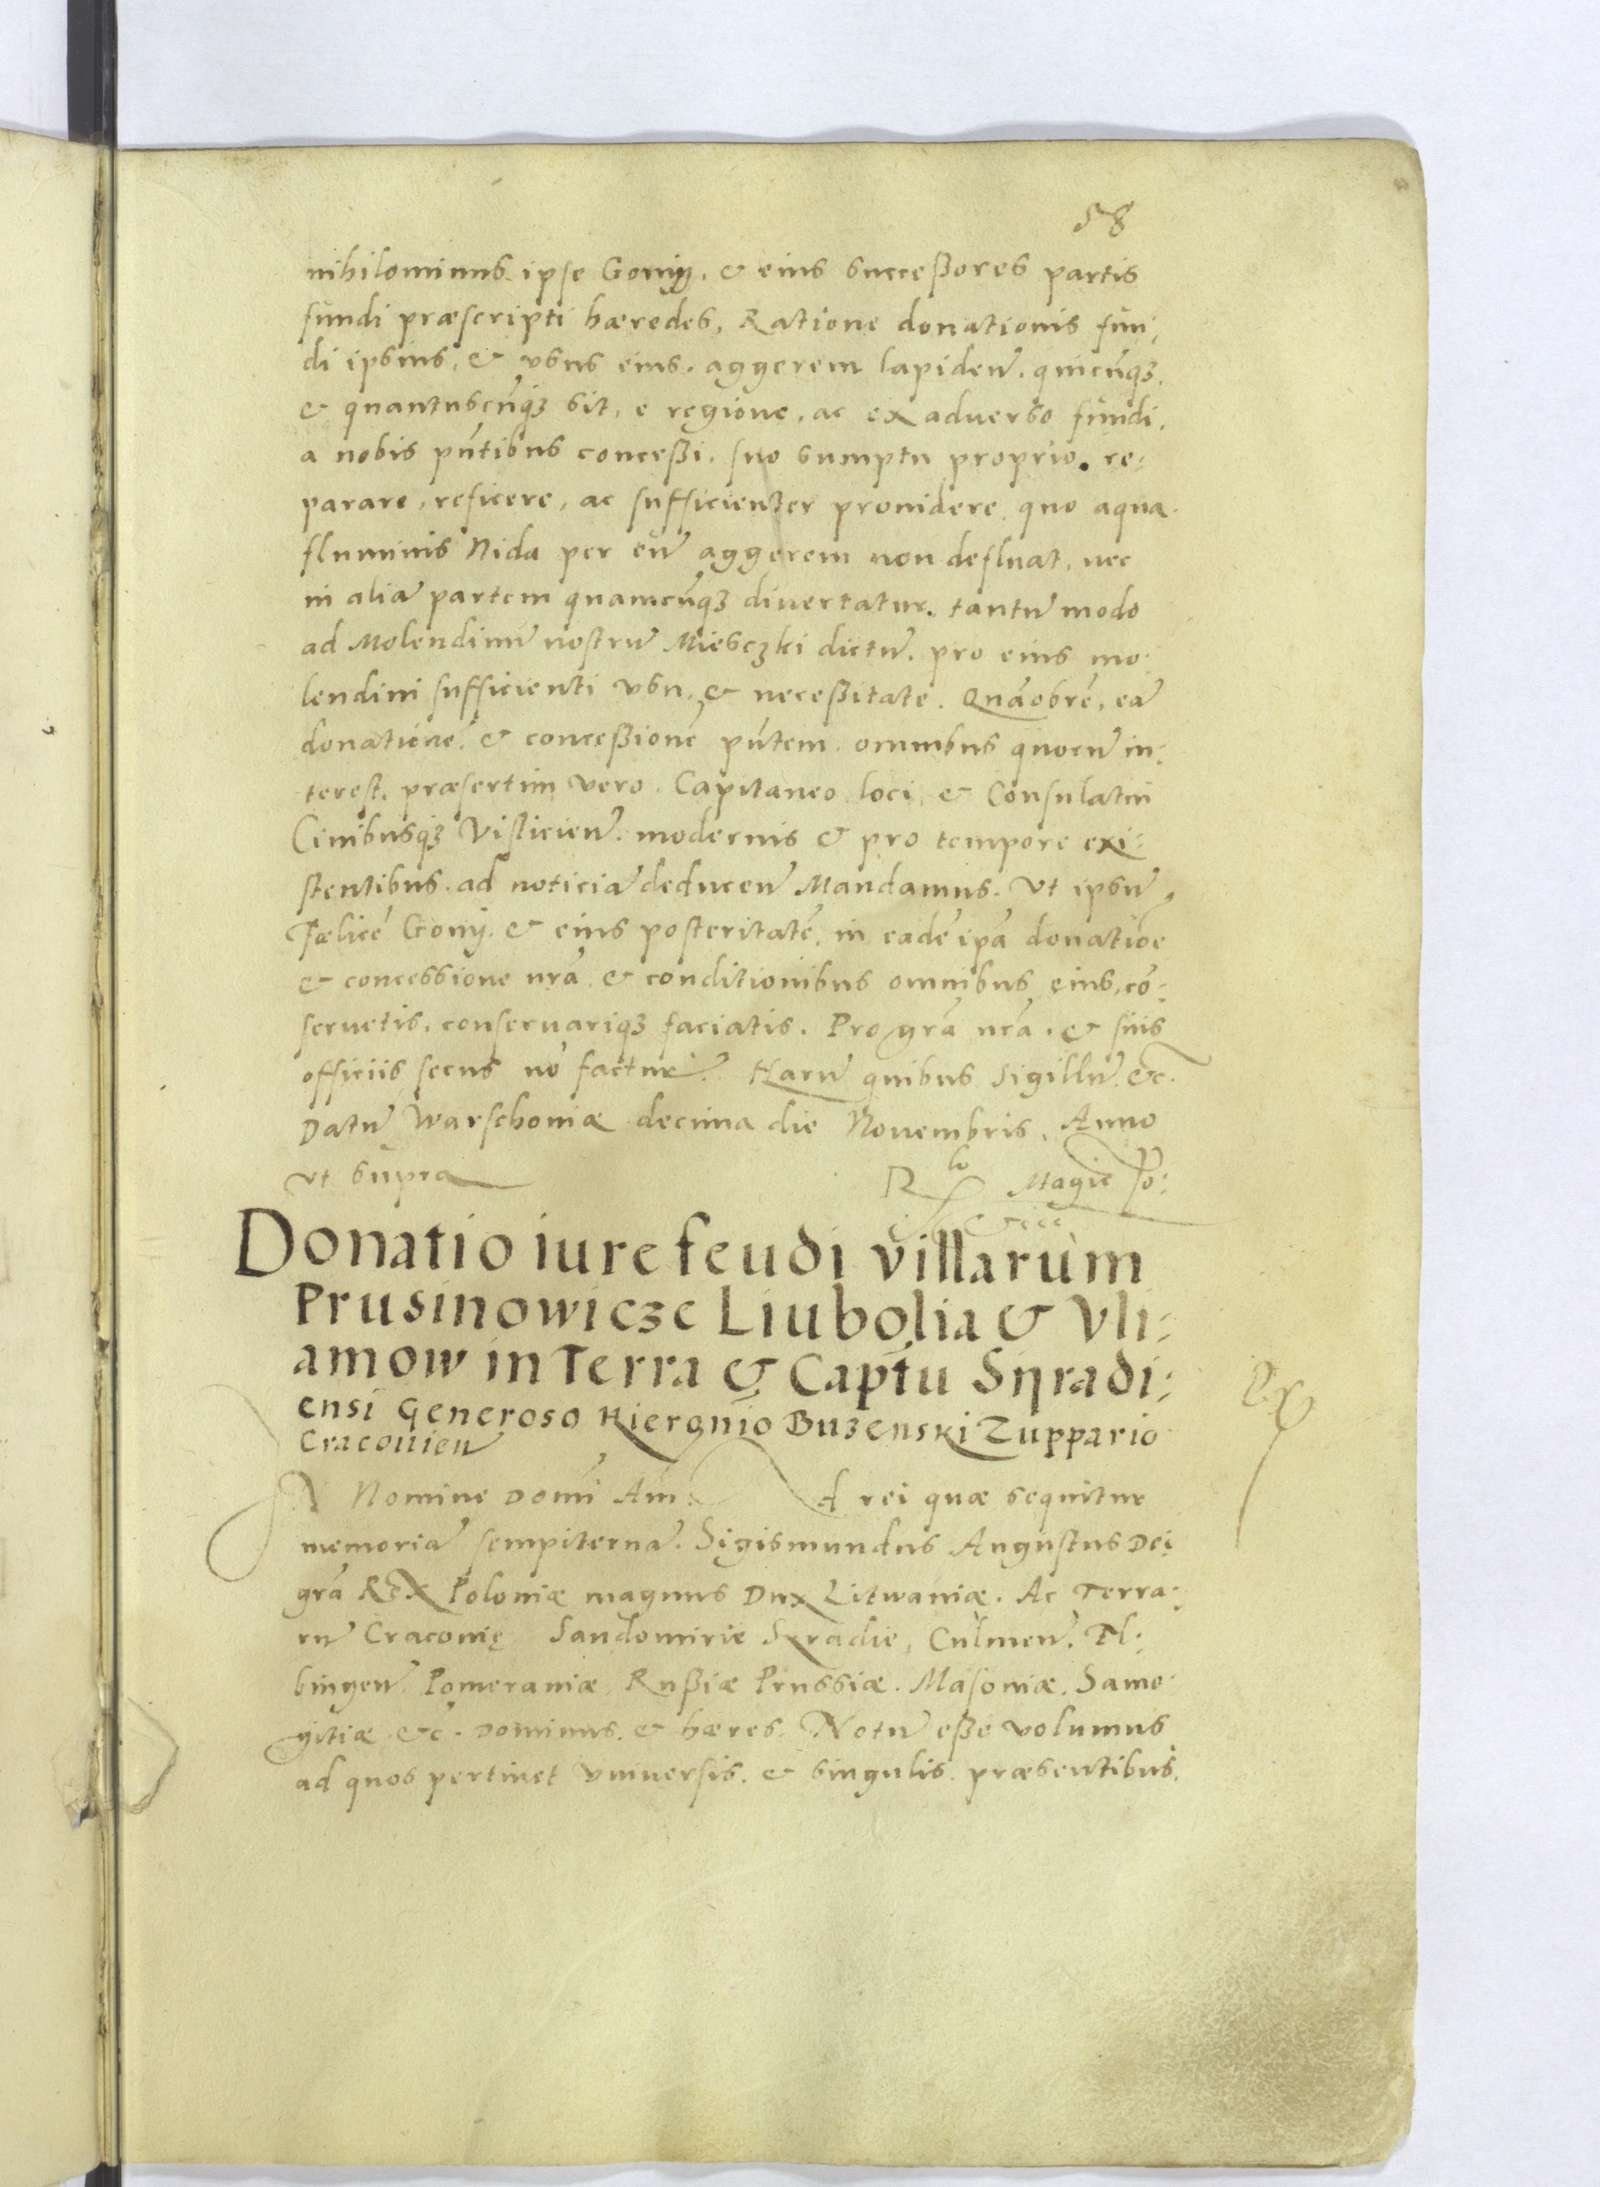 58
nihilominus ipse Goniÿ. & eius successores partis
fundi præscripti hæredes, Ratione donationis fun,
di ipsius, & vsus eius. aggerem lapideũ. quicũq3,
& quantuscũq3 sit, e regione, ac ex aduerso fundi,
a nobis pñtibus conceßi. suo sumptu proprio. re:
parare, reficere, ac sufficienter prouidere, quo aqua
fluminis Nida per eũ aggerem non defluat, nec
in aliã partem quamcũq3 divertatur. tantũ modo
ad Molendinũ nostrũ Miesczki dictũ. pro eius mo:
lendini sufficienti vsu, & neceßitate. Quãobrẽ, eã
donationẽ. & conceßionẽ pñtem. omnibus quorũ in:
terest, præsertim vero. Capitaneo loci, & Consulatui
Ciuibusq3 Visliciẽñ. modernis & pro tempore exi:
stentibus. ad noticiã deduceñ Mandamus. Vt ipsũ
Fœlicẽ Goniÿ. & eius posteritatẽ, in eadẽ ipã donatiõe
& concessione nrã, & conditionibus omnibus eius, cõ:
seruetis, conseruariq3 faciatis. Pro grã nrã. & suis
officiis secus nõ factur. Harũ quibus Sigillũ. &c.
Datũ Warschouiæ decima die Nouembris. Anno
vt supra
Donatio iure feudi villarum
Prusinowicze Liubolia & Vli:
amow in Terra & Captu Sÿradi:
ensi Generoso Hierõnio Buzenski Zuppario
Cracouieñ
N Nomine Domĩ Am: A rei quæ sequitur
memoriã sempiternã. Sigismundus Augustus Dei
grã Rex Poloniæ magnus Dux Litwaniæ. Ac Terra:
rũ Cracouię Sandomirie Syradie, Culmeñ. El:
bingeñ Pomeraniæ, Rußiæ Prussiæ. Masouiæ. Samo:
gitiæ &c. Dominus. & hæres. Notũ eße volumus
ad quos pertinet vniuersis. & singulis præsentibus.